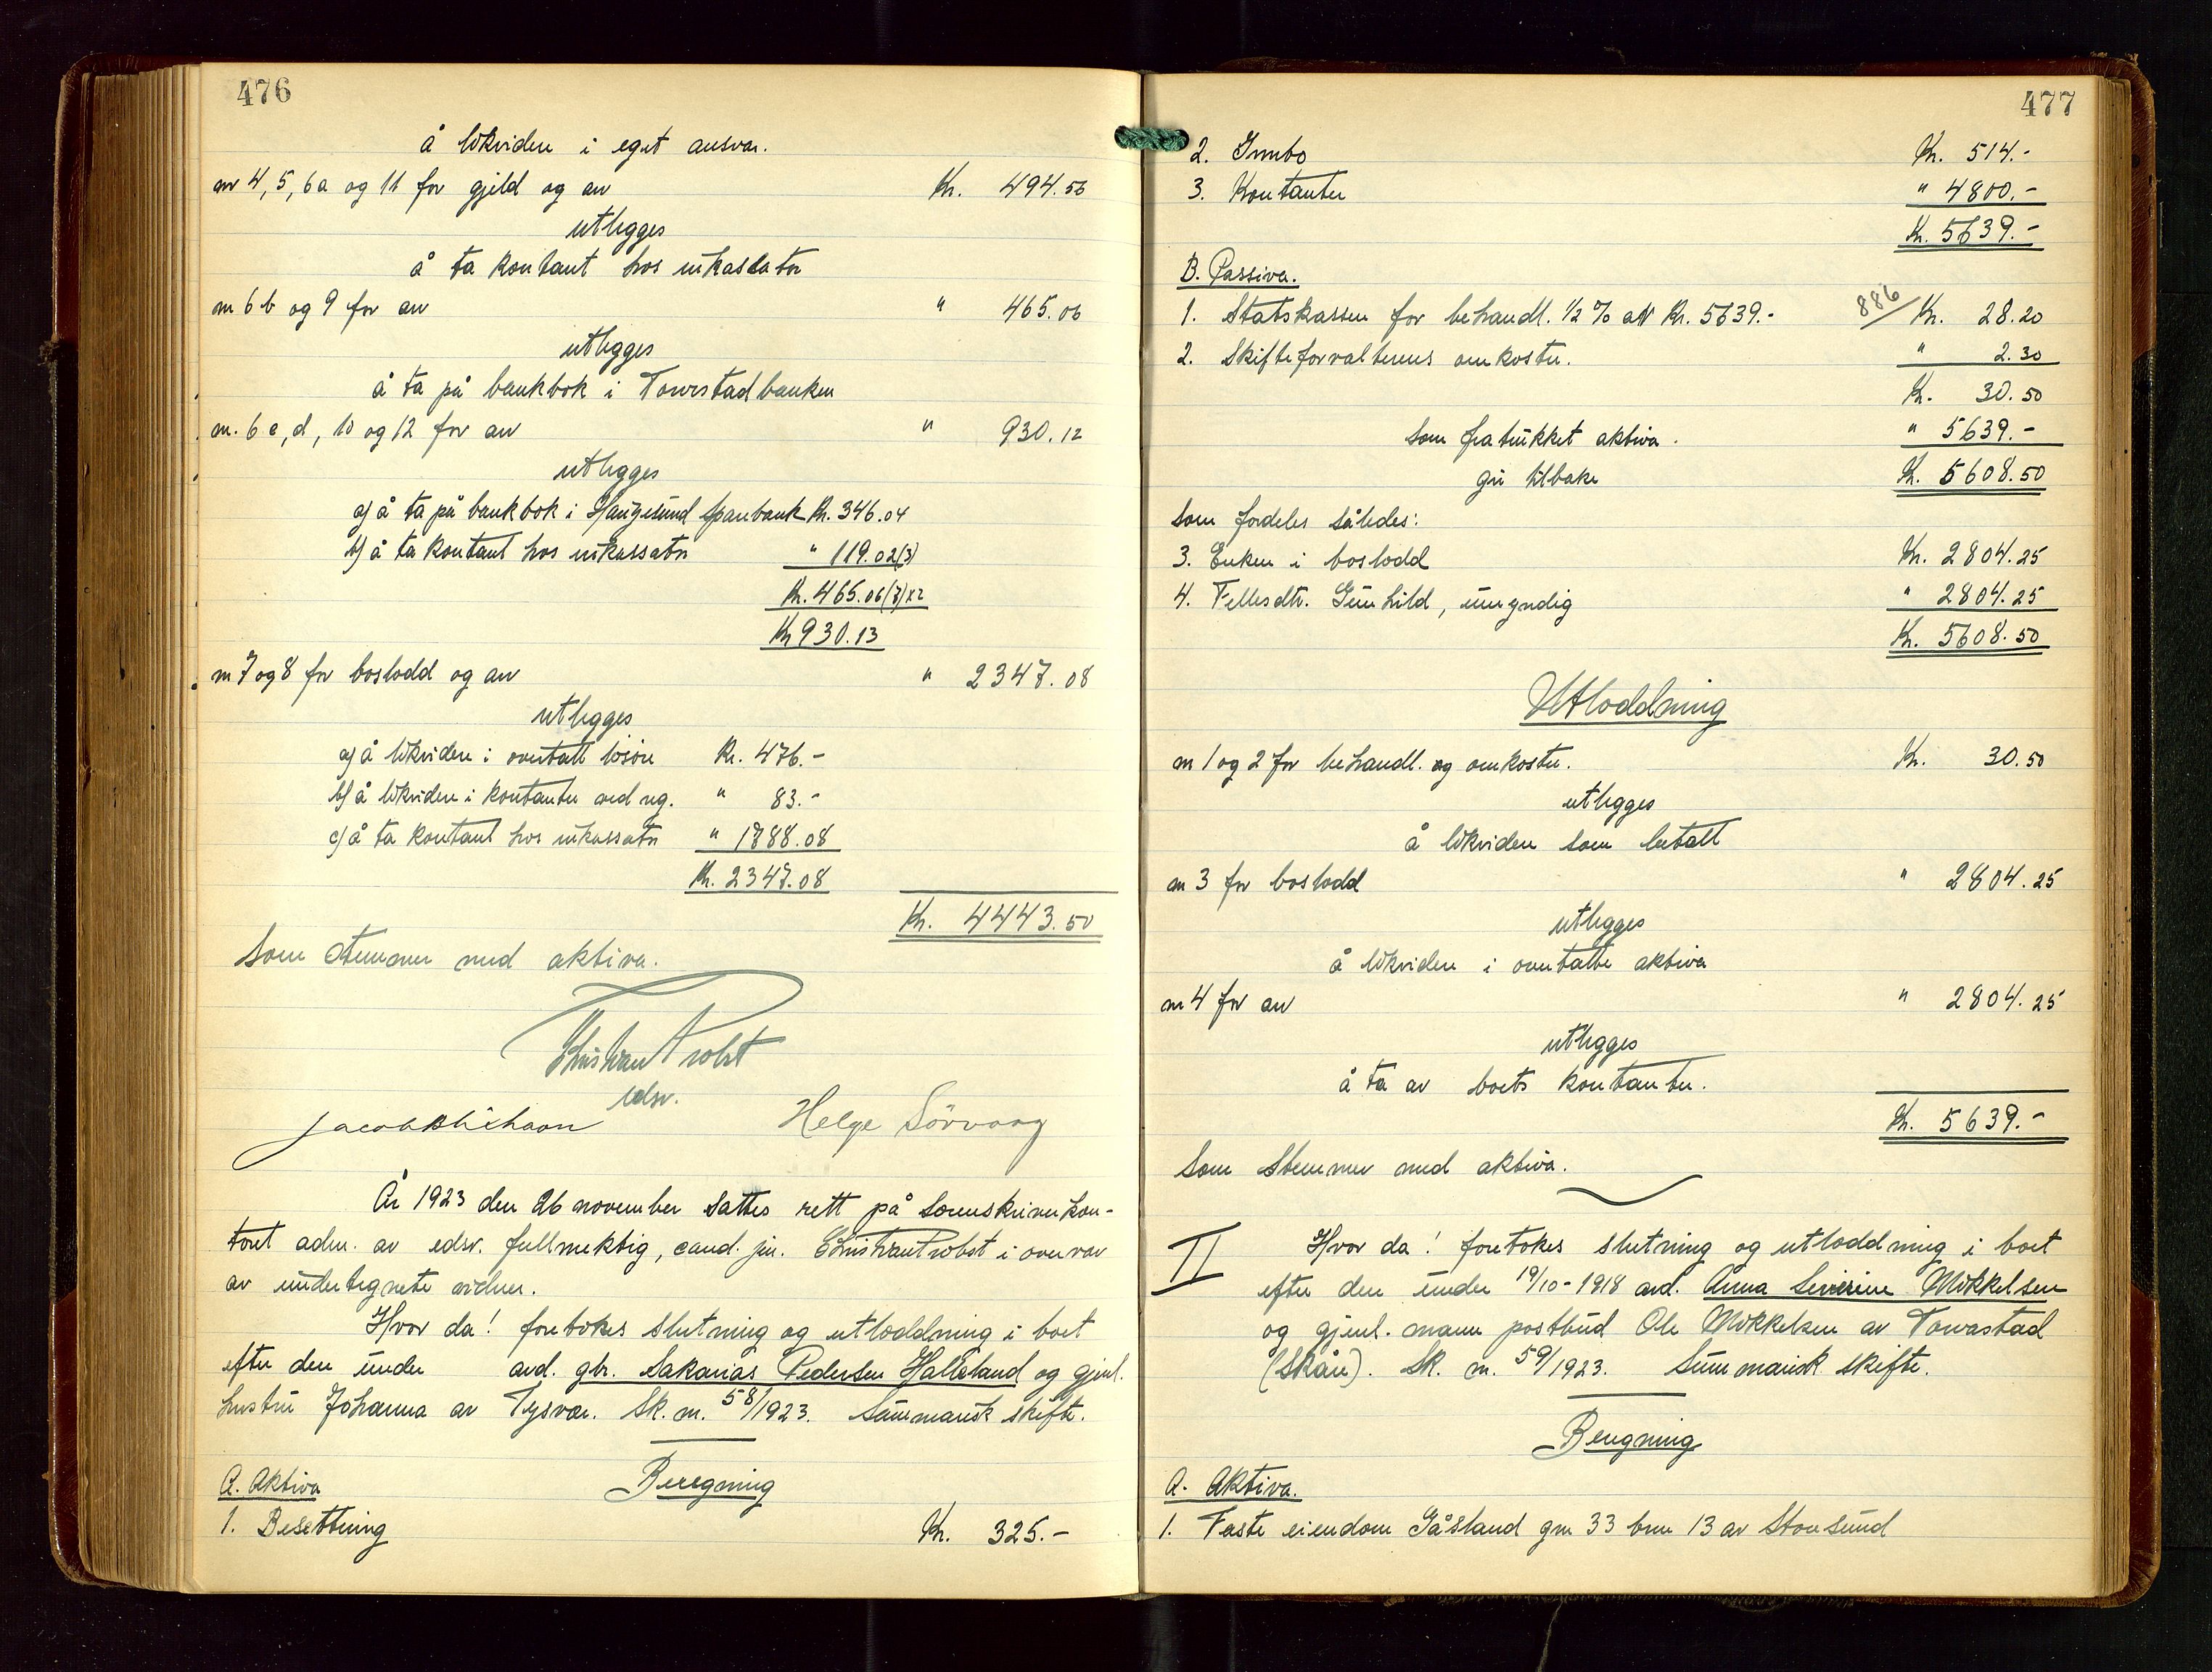 476
å likvidere i eget ansvar.
nr 4, 5, 6a og 11 for gjeld og arv Kr. 494.56
utlegges
å ta kontant hos inkassator
nr 6 b og 9 for arv " 465.06
utlegges
å ta på bankbok i Torvestadbanken
nr. 6 c, d, 10 og 12 for arv " 930.12
utlegges
a) å ta på bankbok i Haugesund Sparebank Kr. 346.04
b) å ta kontant hos inkassator " 119.02(3)
Kr. 465.06(7)x2
Kr 930.13
nr 7 og 8 for boslodd og arv " 2347.08
utlegges
a) å likvidere i overtatt løsøre Kr. 476.-
b) å likvidere i kontanter ved reg. " 83.-
c) å ta kontant hos inkassator " 1788.08
Kr. 2347.08
Kr. 4443.50
Som stemmer med aktiva.
Christian Probst
edsv.
Helge Sörvaag
År 1923 den 26 november sattes rett på Sorenskriverkon-
toret adm. av edsv. fullmektig, cand. jur. Christian Probst i overvær
av undertegnete vidner.
Hvor da! foretokes slutning og utloddning i boet
efter den under avd. gbr. Sakarias Pedersen Halleland og gjenl.
hustru Johanna av Tysvær. Sk. nr. 58/1923. Summarisk skifte.
Beregning
A. Aktiva
1. Besettning Kr. 325.-
477
2. Innbo Kr. 514.-
3. Kontanter " 4800.-
Kr. 5639.-
B. Passiva.
1. Statskassen for behandl. 1/2 % av Kr. 5639.- 886 Kr. 28.20
2. Skifteforvalterens omkostn. " 2.30
Kr. 30.50
som fratrukket aktiva. " 5639.-
gir tilbake Kr. 5608.50
som fordeles således:
3. Enken i boslodd Kr. 2804.25
4. Fellesdtr. Gunhild, umyndig " 2804.25
Kr. 5608.50
Utloddning
nr 1 og 2 for behandl. og omkostn. Kr. 30.50
utlegges
å likvidere som betalt
nr 3 for boslodd " 2804.25
utlegges
å likvidere i overtatte aktiva
nr 4 for arv " 2804.25
utlegges
å ta av boets kontanter.
Kr. 5639.-
Som stemmer med aktiva.
II Hvor da! foretokes slutning og utloddning i boet
efter den under 19/10-1918 avd. Anna Severine Mikkelsen
og gjenl. mann postbud Ole Mikkelsen av Torvastad
(Skåre). Sk. nr. 59/1923. Summarisk skifte.
Beregning
A. Aktiva.
1. Faste eiendom Gåsland gnr 33 bnr 13 av Storesund